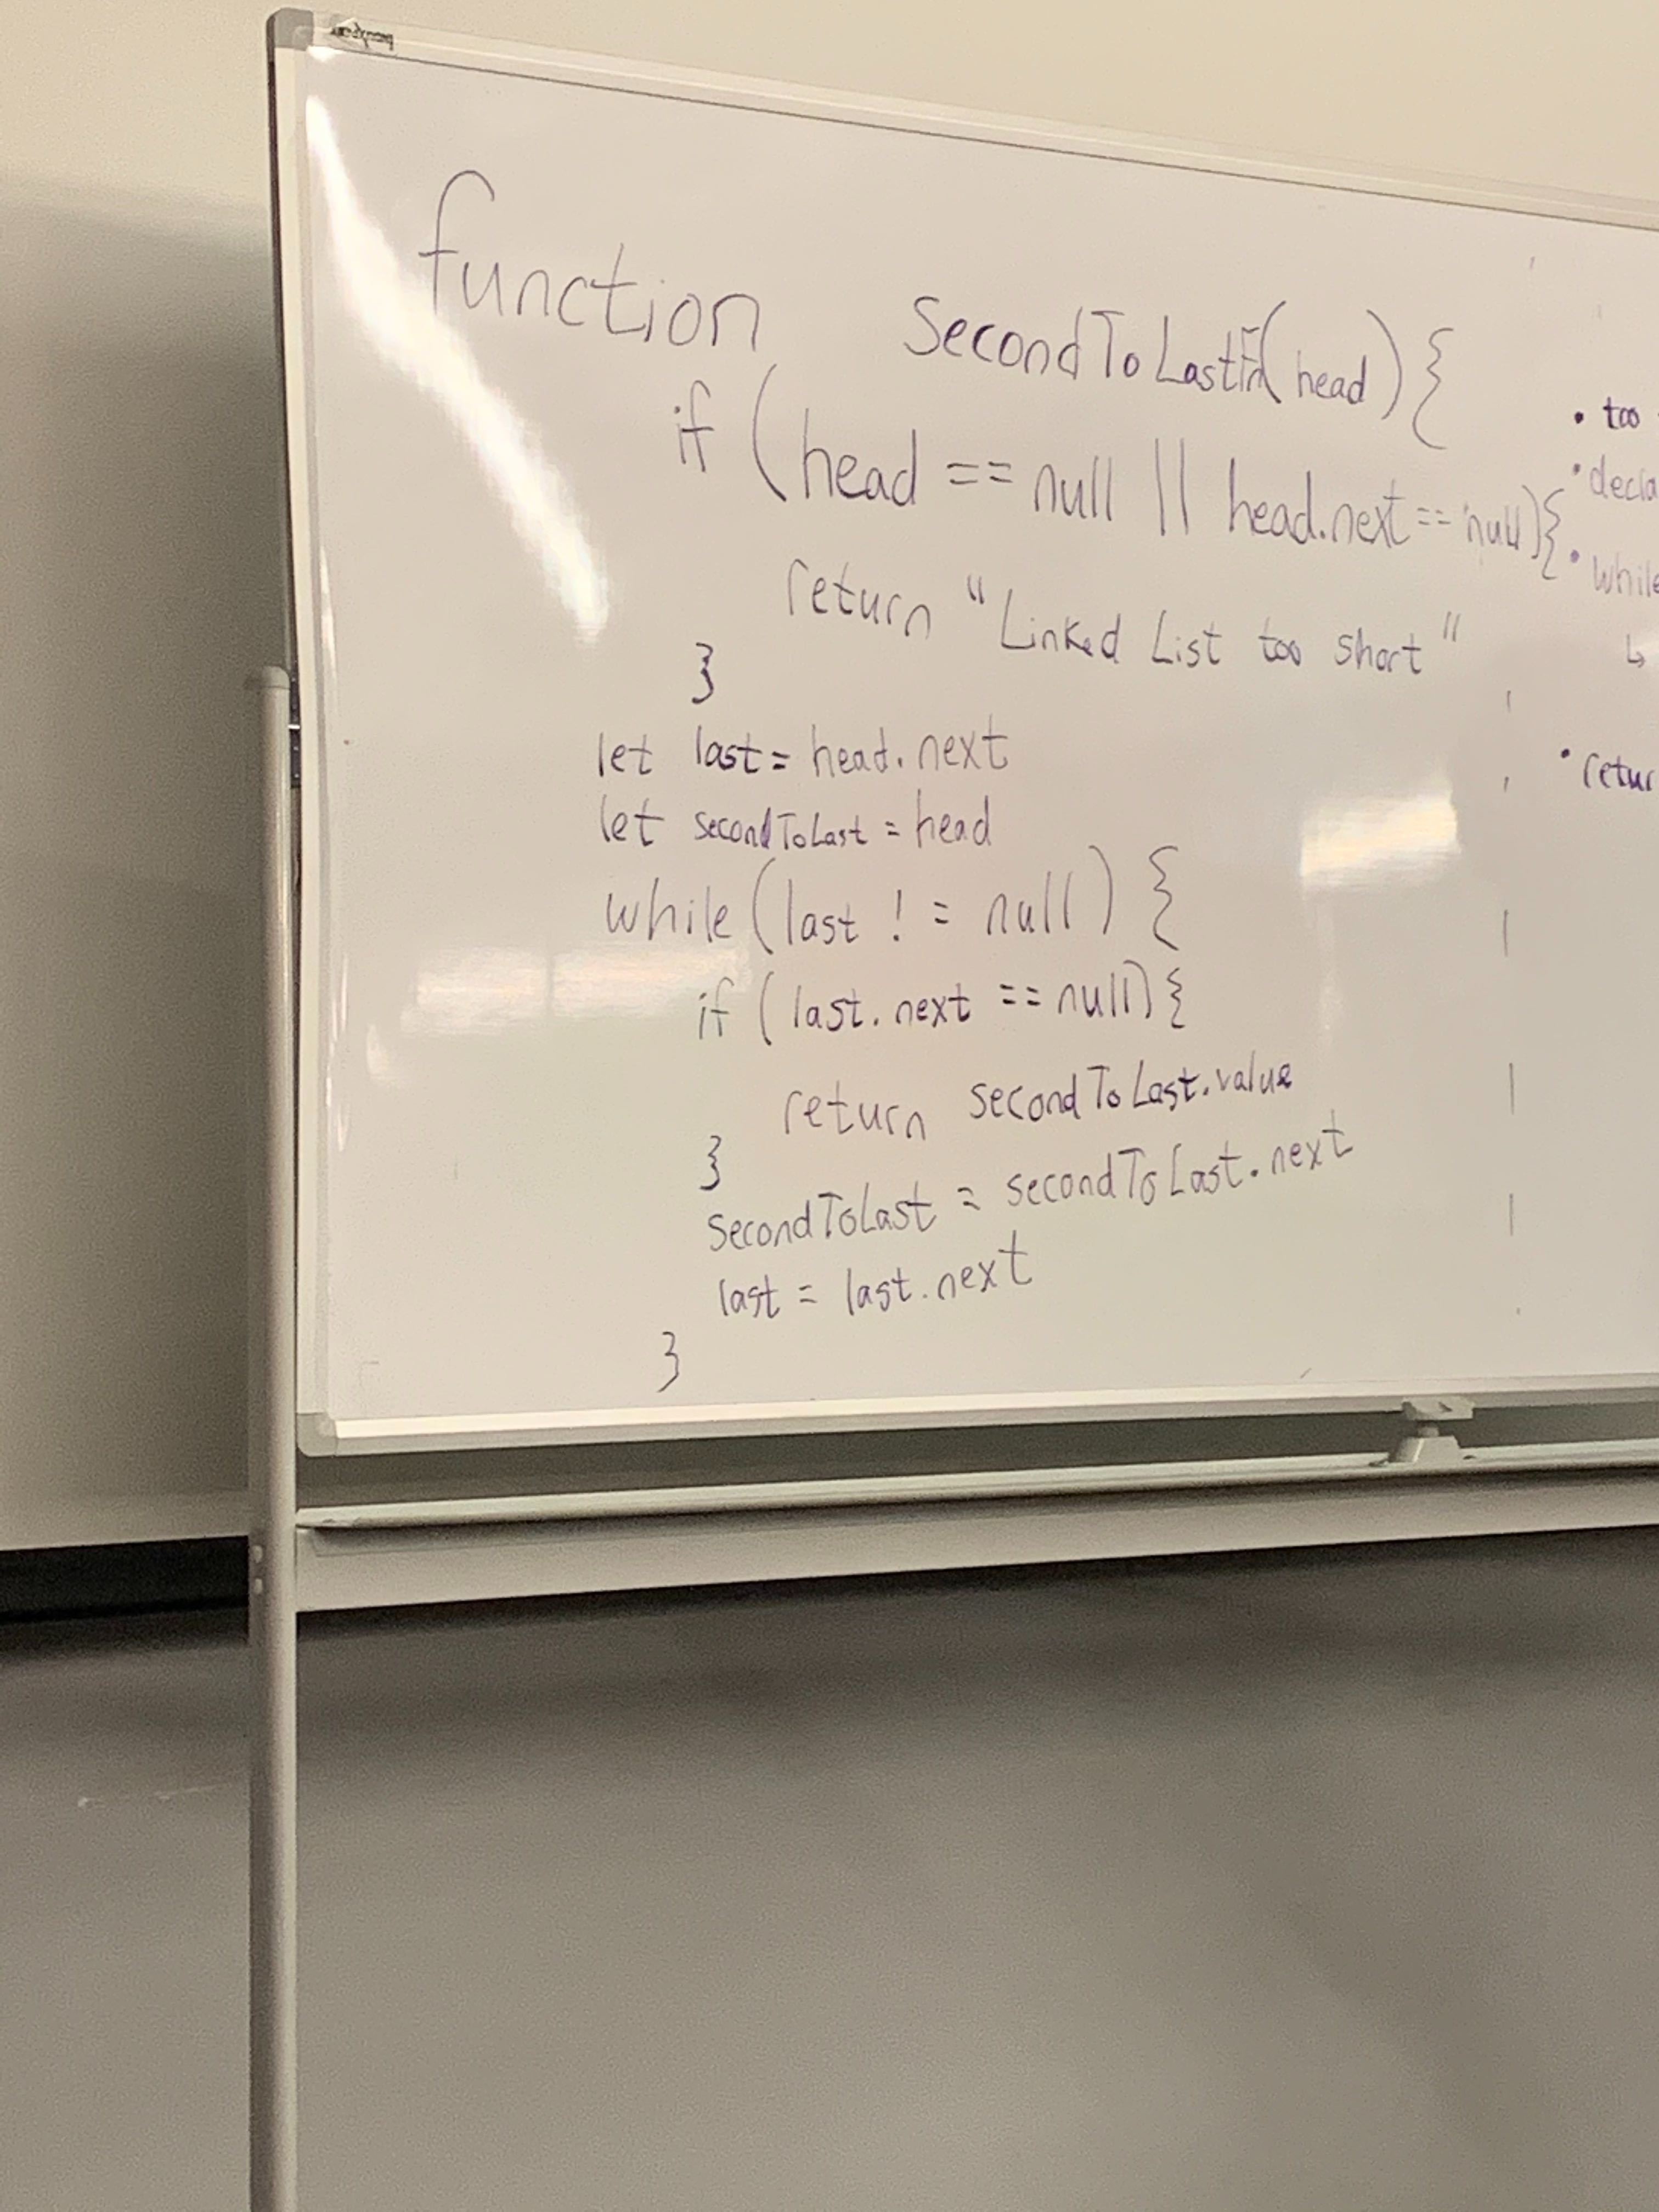 function secondToLastFn(head){
if (head == null || head.next == null){
return "Linked List too short"
}
let last = head.next
let secondToLast = head
while (last != null) {
if (last.next == null){
return secondToLast.value
}
secondToLast = secondToLast.next
last = last.next
}
• too
• decla
• while
↳
• retur